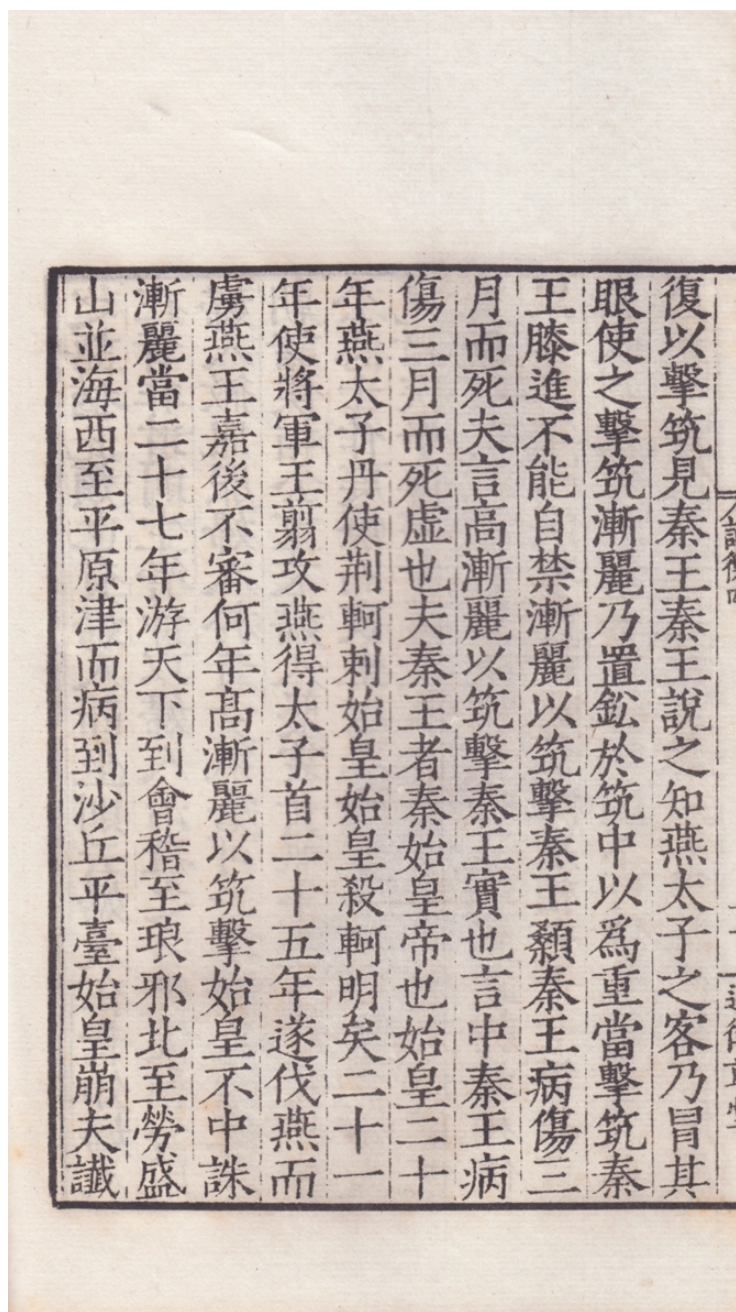 復以擊筑見秦王秦王說之知燕太子之客乃冒其
眼使之擊筑漸麗乃置鈆於筑中以爲重當擊筑秦
王膝進不能自禁漸麗以筑擊秦王顙秦王病傷三
月而死夫言高漸麗以筑擊秦王實也言中秦王病
傷三月而死虚也夫秦王者秦始皇帝也始皇二十
年燕太子丹使荆軻刺始皇始皇殺軻明矣二十一
年使將軍王翦攻燕得太子首二十五年遂伐燕而
虜燕王嘉後不審何年髙漸麗以筑擊始皇不中誅
漸麗當二十七年游天下到會稽至琅邪北至勞盛
山並海西至平原津而病到沙丘平臺始皇崩夫讖